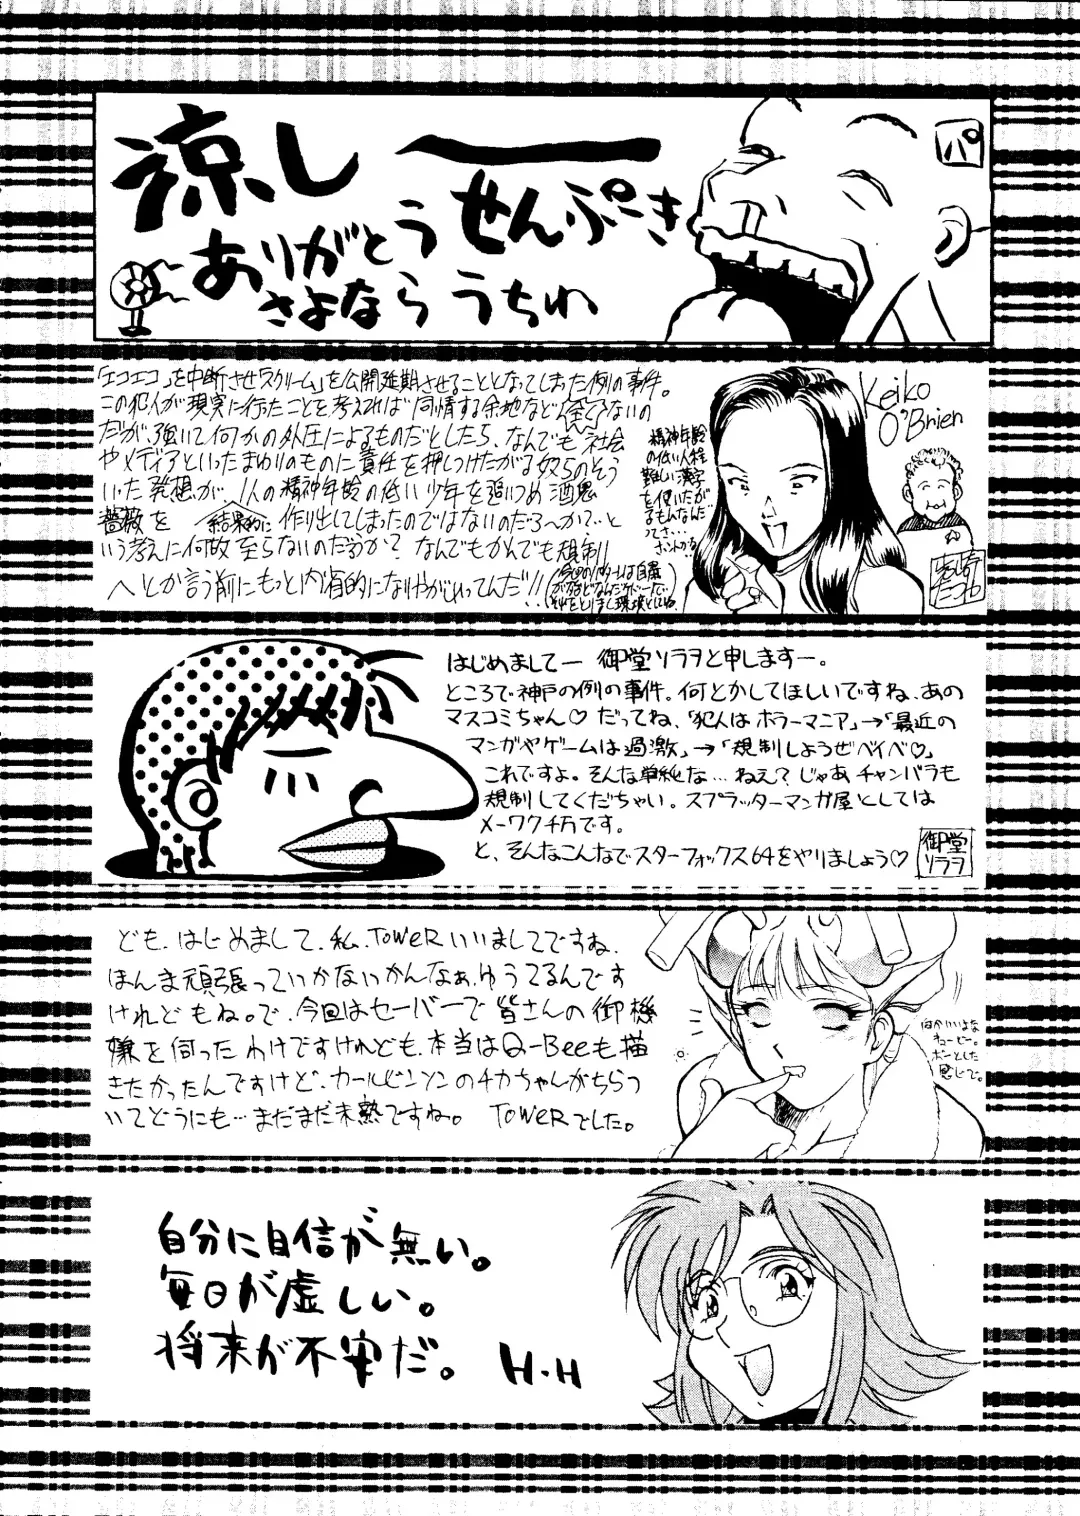 涼しーー
せんぷーき
ありがとう
さよなら うちわ
パ
「エコエコ」を中断させ「スクリーム」を公開延期させることとなってしまった例の事件。
この犯人が現実に行ったことを考えれば同情する余地など全くないの
だが、強いて何かの外圧によるものだとしたら、なんでも社会
やメディアといったまわりのものに責任を押しつけたがる奴らのそう
いた発想が、1人の精神年齢の低い少年を追いつめ酒鬼
薔薇を結果的に作り出してしまったのではないのだろーか?と
いう考えに何故至らないのだろうか?なんでもかんでも規制
へとか言う前にもっと内省的になりやがれってんだ!!
精神年齢
の低い人程
難しい漢字
を使いたが
るもんなんだ
ってさ…
Keiko
O'Brien
はじめましてー 御堂ソラヲと申しますー。
ところで神戸の例の事件。何とかしてほしいですね、あの
マスコミちゃん♡ だってね、「犯人はホラーマニア」→「最近の
マンガやゲームは過激」→「規制しようぜベイベ♡」
これですよ。そんな単純な…ねえ?じゃあチャンバラも
規制してくだちゃい。スプラッターマンガ屋としては
メーワク千万です。
と、そんなこんなでスターフォックス64をやりましょう♡
御堂
ソラヲ
ども、はじめまして、私、TOWERいいましてですね、
ほんま頑張っていかないかんなぁ、ゆうてるんです
けれどもね。で、今回はセーバーで皆さんの御機
嫌を伺ったわけですけれども、本当はQ-Beeも描
きたかったんですけど、カールビンソンのチカちゃんがちらつ
いてどうにも…まだまだ未熟ですね。 TOWERでした。
何かいいよな
キュービー。
ボーとした
感じで。
自分に自信が無い。
毎日が虚しい。
将来が不安だ。 H・H